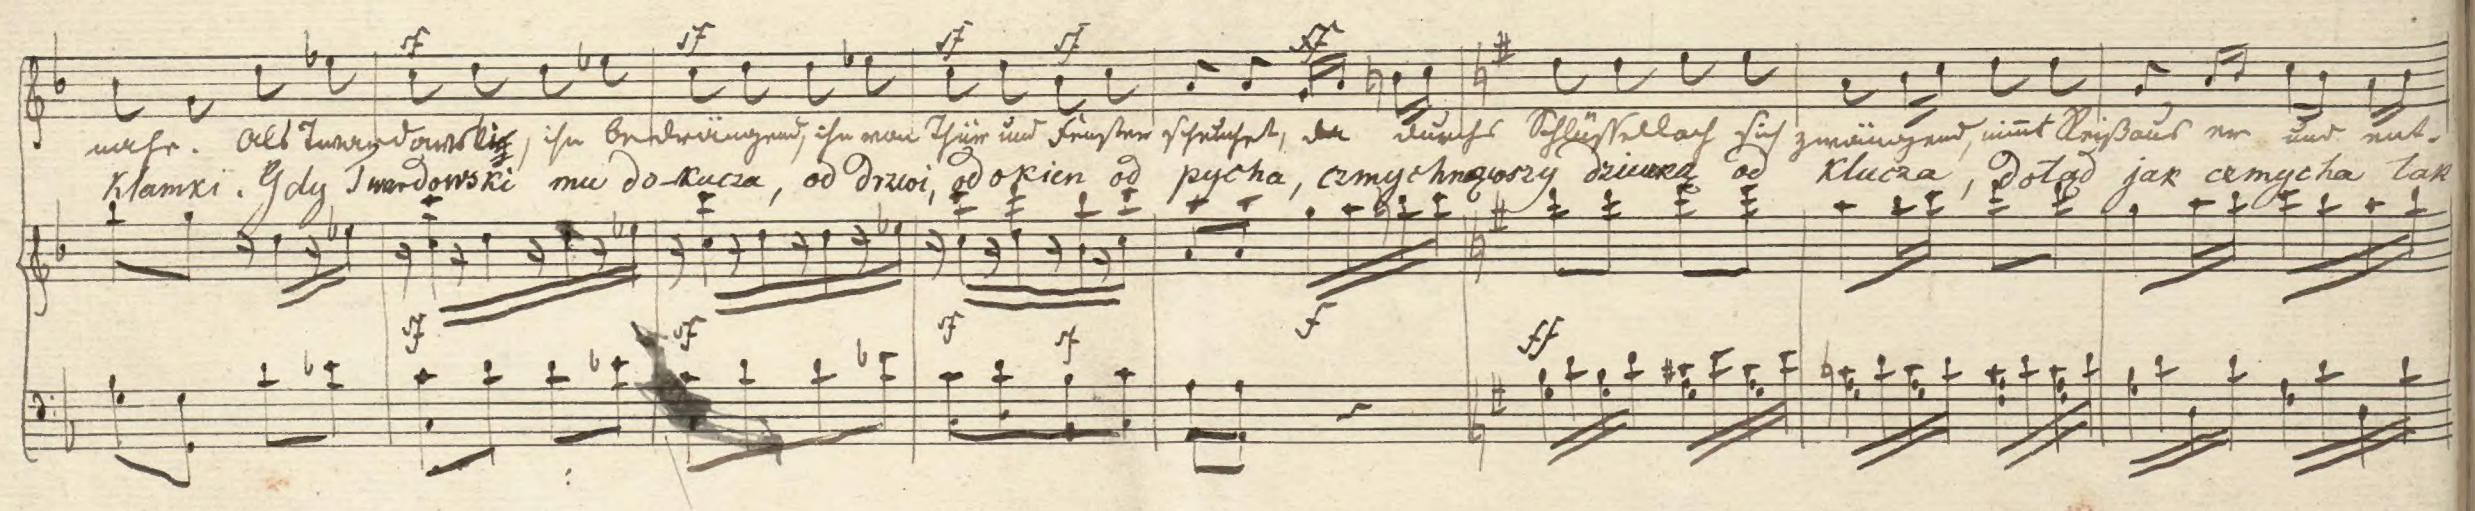 sf sf sf sf sf
nahe. Als Twardowski, ihn bedrängend, ihn von Thür und Fenster scheuchet, da durchs Schlüsselloch sich zwängend, nimmt Reißaus er und ent-
klamki. Gdy Twardowski mu do-kucza, od drzwi, od okien od pycha, czmychnąwszy dziurką od klucza, dotąd jak czmycha tak
f
sf sf sf sf ff